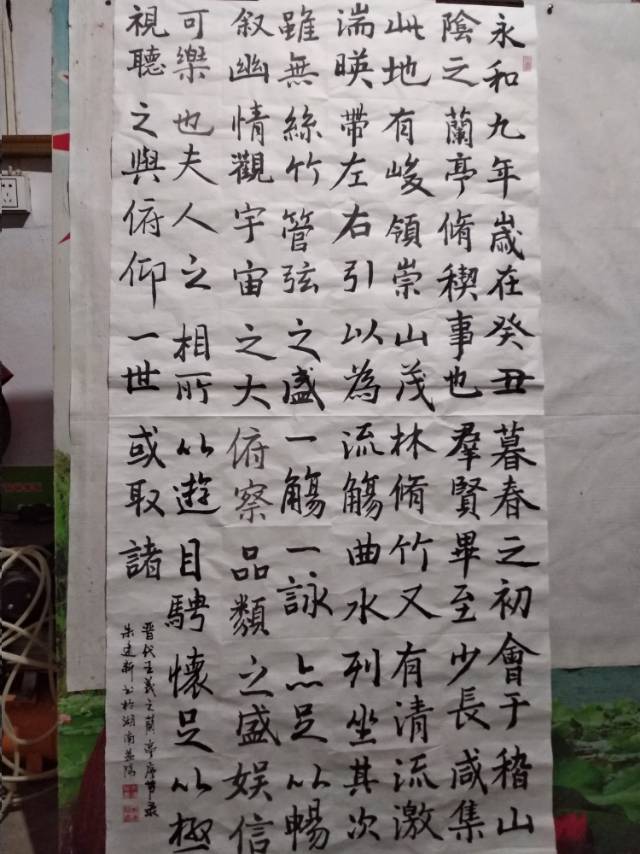 永和九年歲在癸丑暮春之初會于稽山
陰之蘭亭脩稧事也羣賢畢至少長咸集
此地有峻領崇山茂林脩竹又有清流激
湍暎帶左右引以為流觴曲水列坐其次
雖無絲竹管弦之盛一觴一詠亦足以暢
叙幽情觀宇宙之大俯察品類之盛娛信
可樂也夫人之相所以遊目騁懷足以極
視聽之與俯仰一世或取諸
晋代王羲之蘭亭序节录
朱建新书於湖南益阳